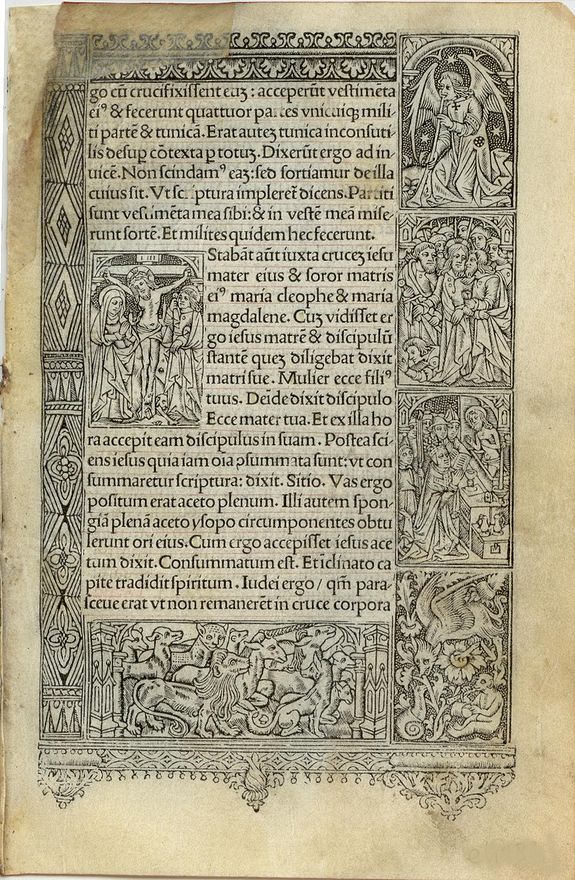 go cũ crucifixissent euꝫ : acceperũt vestimẽta
eiꝰ & fecerunt quattuor partes vnicuiqꝫ mili
ti partẽ & tunicã. Erat auteꝫ tunica inconsuti
lis desuꝑ cõtexta ꝑ totuꝫ. Dixerũt ergo ad in⸗
uicẽ. Non scindamꝰ eaꝫ: sed sortiamur de illa
cuius sit. Vt scriptura impleret̃ dicens. Partiti
sunt vestimẽta mea sibi: & in vestẽ meã mise⸗
runt sortẽ. Et milites quidem hec fecerunt.
Stabãt aũt iuxta cruceꝫ iesu
mater eius & soror matris
eiꝰ maria cleophe & maria
magdalene. Cuꝫ vidisset er
go iesus matrẽ & discipulũ
stantẽ queꝫ diligebat dixit
matri sue. Mulier ecce filiꝰ
tuus. Deĩde dixit discipulo
Ecce mater tua. Et ex illa ho
ra accepit eam discipulus in suam. Postea sci⸗
ens iesus quia iam oĩa ꝓsummata sunt: vt con
summaretur scriptura: dixit. Sitio. Vas ergo
positum erat aceto plenum. Illi autem spon⸗
giã plenã aceto ysopo circumponentes obtu
lerunt ori eius. Cum ergo accepisset iesus ace
tum dixit. Consummatum est. Et iclinato ca
pite tradidit spiritum. Iudei ergo / qm̃ para⸗
sceue erat vt non remanerẽt in cruce corpora